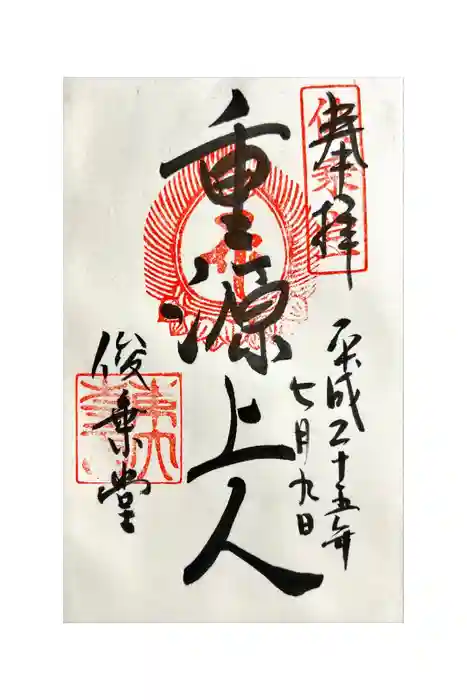 奉拝
俊乗堂
平成二十五年
七月九日
重源上人
俊乗堂